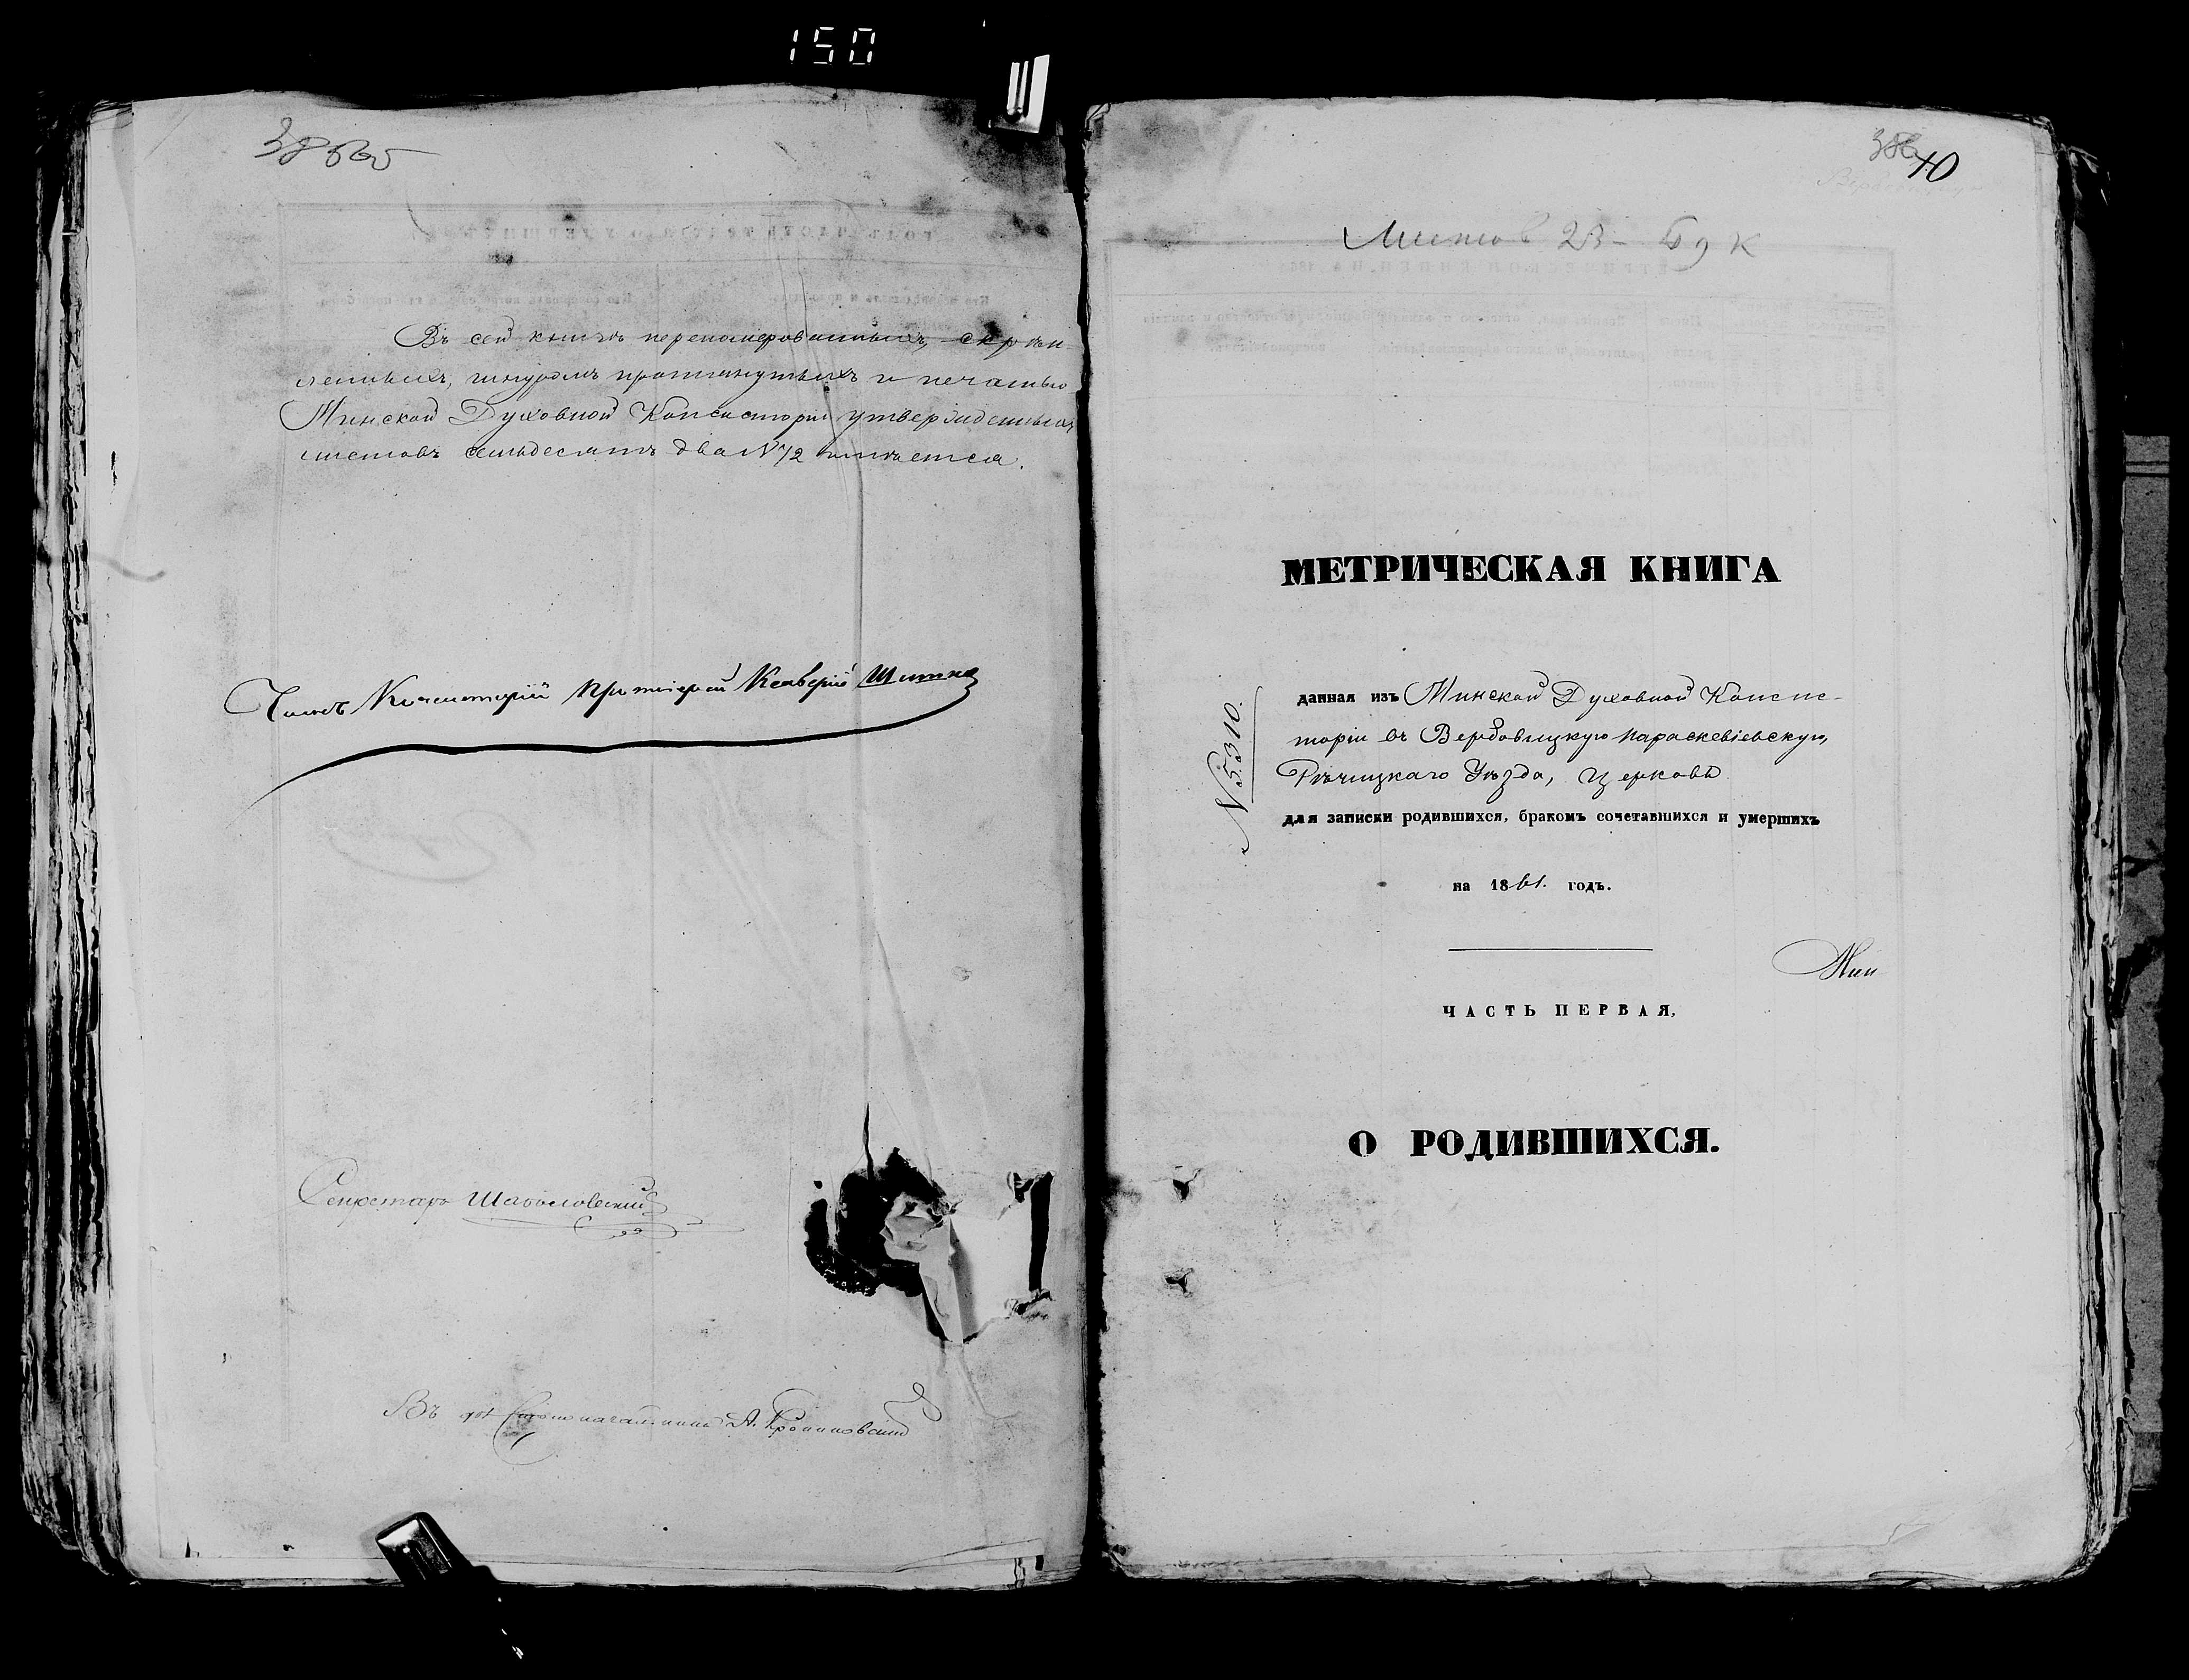 150
Въ сей книгѣ перенумерованныхъ, скрѣп
ленныхъ, шнуромъ протянутыхъ и печатью
Минской Духовной Консисторіи утвержденныхъ
листовъ семьдесятъ два N 72 имѣется.
Членъ Консисторіи Протоіерей Ксаверій
Секретарь
Въ Столоначальника А.
40
Листов 23 -
МЕТРИЧЕСКАЯ КНИГА
N 5310.
данная изъ Минской Духовной Консис-
торіи въ Вербовицкую Параскевіевскую,
Рѣчицкаго Уѣзда, церковь
для записки родившихся, бракомъ сочетавшихся и умершихъ
на 1861. годъ.
Мин
ЧАСТЬ ПЕРВАЯ,
О РОДИВШИХСЯ.